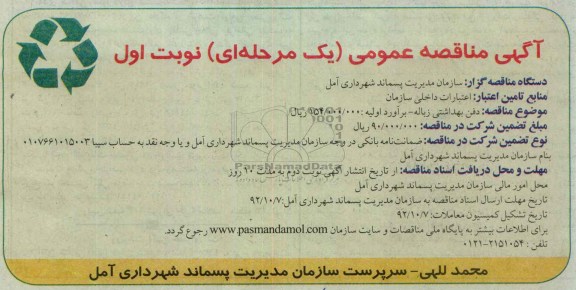 آگهی مناقصه عمومی (یک مرحله‌ای) نوبت اول
دستگاه مناقصه گزار: سازمان مدیریت پسماند شهرداری آمل
منابع تامین اعتبار: اعتبارات داخلی سازمان
موضوع مناقصه: دفن بهداشتی زباله- برآورد اولیه: ریال
مبلغ تضمین شرکت در مناقصه: ۹۰/۰۰۰/۰۰۰ ریال
نوع تضمین شرکت در مناقصه: ضمانت‌نامه بانکی در وجه سازمان مدیریت پسماند شهرداری آمل و یا وجه نقد به حساب سیبا ۰۱۰۷۶۶۱۰۱۵۰۰۳
بنام سازمان مدیریت پسماند شهرداری آمل
مهلت و محل دریافت اسناد مناقصه: از تاریخ انتشار آگهی نوبت دوم به مدت ۱۰ روز
محل امور مالی سازمان مدیریت پسماند شهرداری آمل
تاریخ مهلت ارسال اسناد مناقصه به سازمان مدیریت پسماند شهرداری آمل: ۹۲/۱۰/۷
تاریخ تشکیل کمیسیون معاملات: ۹۲/۱۰/۷
برای اطلاعات بیشتر به پایگاه ملی مناقصات و سایت سازمان www.pasmandamol.com رجوع گردد.
تلفن: ۰۱۲۱-۲۱۵۱۰۵۴
محمد للهی- سرپرست سازمان مدیریت پسماند شهرداری آمل
ParsNamadData